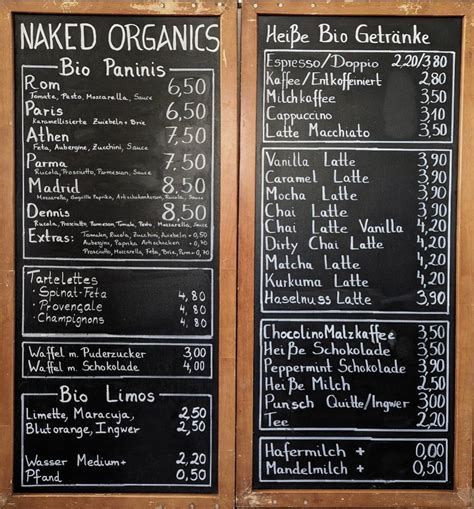 NAKED ORGANICS
Bio Paninis
Rom 6,50
Tomate, Pesto, Mozzarella, Sauce
Paris 6,50
Karamellisierte Zwiebeln + Brie
Athen 7,50
Feta, Aubergine, Zucchini, Sauce
Parma 7,50
Rucola, Prosciutto, Parmesan, Sauce
Madrid 8,50
Mozzarella, Gegrillte Paprika, Artischokenherzen, Rucola, Sauce
Dennis 8,50
Rucola, Prosciutto, Parmesan, Tomate, Pesto, Mozzarella, Sauce
Extras: Tomaten, Rucola, Zucchini, Zwiebeln + 0,50
Aubergine, Paprika, Artischocken + 0,40
Prosciutto, Mozzarella, Feta, Brie, Parm + 0,70
Tartelettes
· Spinat-Feta 4,80
· Provençale 4,80
· Champignons 4,80
Waffel m. Puderzucker 3,00
Waffel m. Schokolade 4,00
Bio Limos
Limette, Maracuja, 2,50
Blutorange, Ingwer 2,50
Wasser Medium + 2,20
Pfand 0,50
Heiße Bio Getränke
Espresso/Doppio 2,20/3,80
Kaffee/Entkoffeiniert 2,80
Milchkaffee 3,50
Cappuccino 3,10
Latte Macchiato 3,50
Vanilla Latte 3,90
Caramel Latte 3,90
Mocha Latte 3,90
Chai Latte 3,90
Chai Latte Vanilla 4,20
Dirty Chai Latte 4,20
Matcha Latte 4,20
Kurkuma Latte 4,20
Haselnuss Latte 3,90
ChocolinoMalzkaffee 3,50
Heiße Schokolade 3,50
Peppermint Schokolade 3,90
Heiße Milch 2,50
Punsch Quitte/Ingwer 3,00
Tee 2,20
Hafermilch + 0,00
Mandelmilch + 0,50